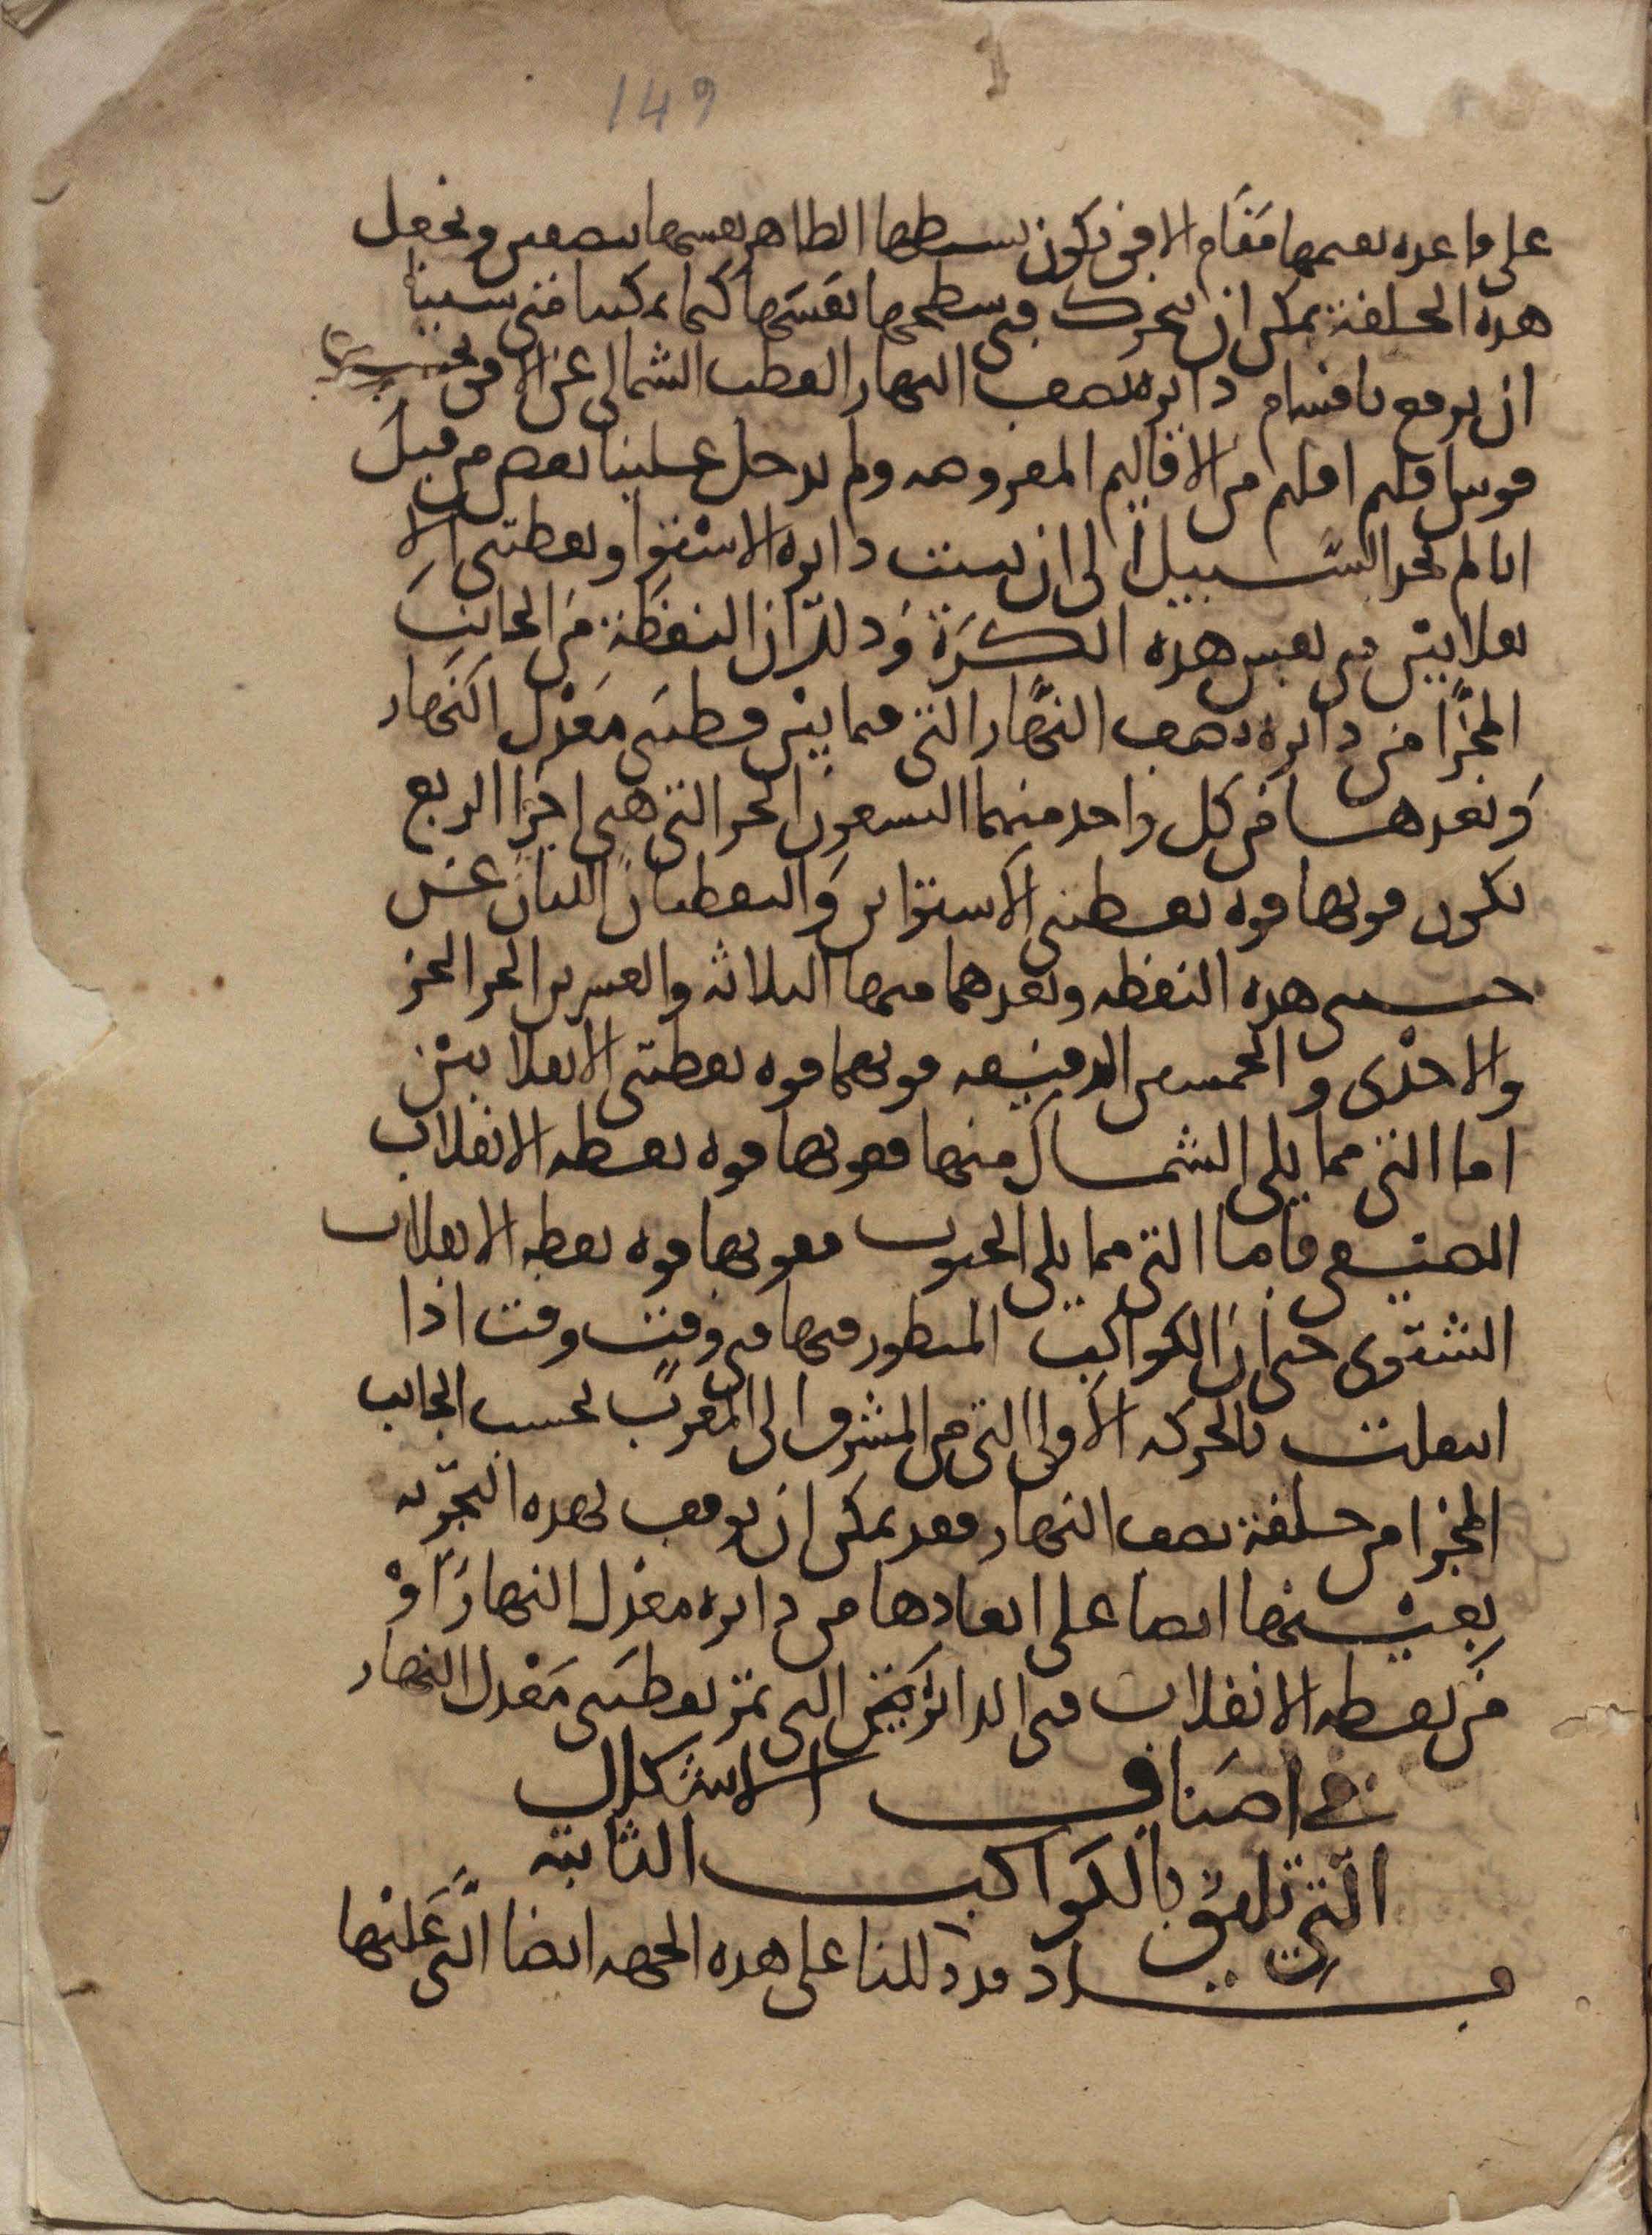 149
على قاعده نقيمها مقام الافق يكون بسطها الظاهر يقسمها بنصفين ونجعل
هذه الحلقة يمكن ان تتحرك في سطحها نفسها كما يمكننا متى شينا
ان نرفع باقسام دايره نصف النهار القطب الشمالي عن الافق بحسب
قوس اقليم اقليم من الاقاليم المفروضه ولم يدخل علينا نقص من قبل
انا لم نجد السبيل الى ان نثبت دايره الاستوا ونقطتى الا
نقلابين في نفس هذه الكرة وذلك ان النقطة من الجانب
المجزا من دايره نصف النهار التي فيما بين قطبى معدل النهار
وبعدها من كل واحد منهما التسعون الجزا التى هي اجزا الربع
تكون قوتها قوه نقطتى الاستواين والنقطتان اللتان عن
جنبتى هذه النقطه وبعدهما منها الثلاثه والعشرين الجز الجز
والاحدى والخمسين الدقيقه قوتهما قوه نقطتى الانقلابين
اما التي مما يلى الشمال منها فقوتها قوه نقطه الانقلاب
الصيفى فاما التي مما يلى الجنوب فقوتها قوه نقطه الانقلاب
الشتوى حتى ان الكواكب المنظور فيها في وقت وقت اذا
انتقلت بالحركه الاولى التي من المشرق الى المغرب بحسب الجانب
المجزا من حلقة نصف النهار فقد يمكن ان نوقف بهذه التجزيه
بعينها ايضا على ابعادها من دايره معدل النهار او
من نقطه الانقلاب في الدائرتين التى تمر بقطبى معدل النهار
في اصناف الاشكال
التي تليق بالكواكب الثابته
فاذ قد دللنا على هذه الجهه ايضا التي عليها